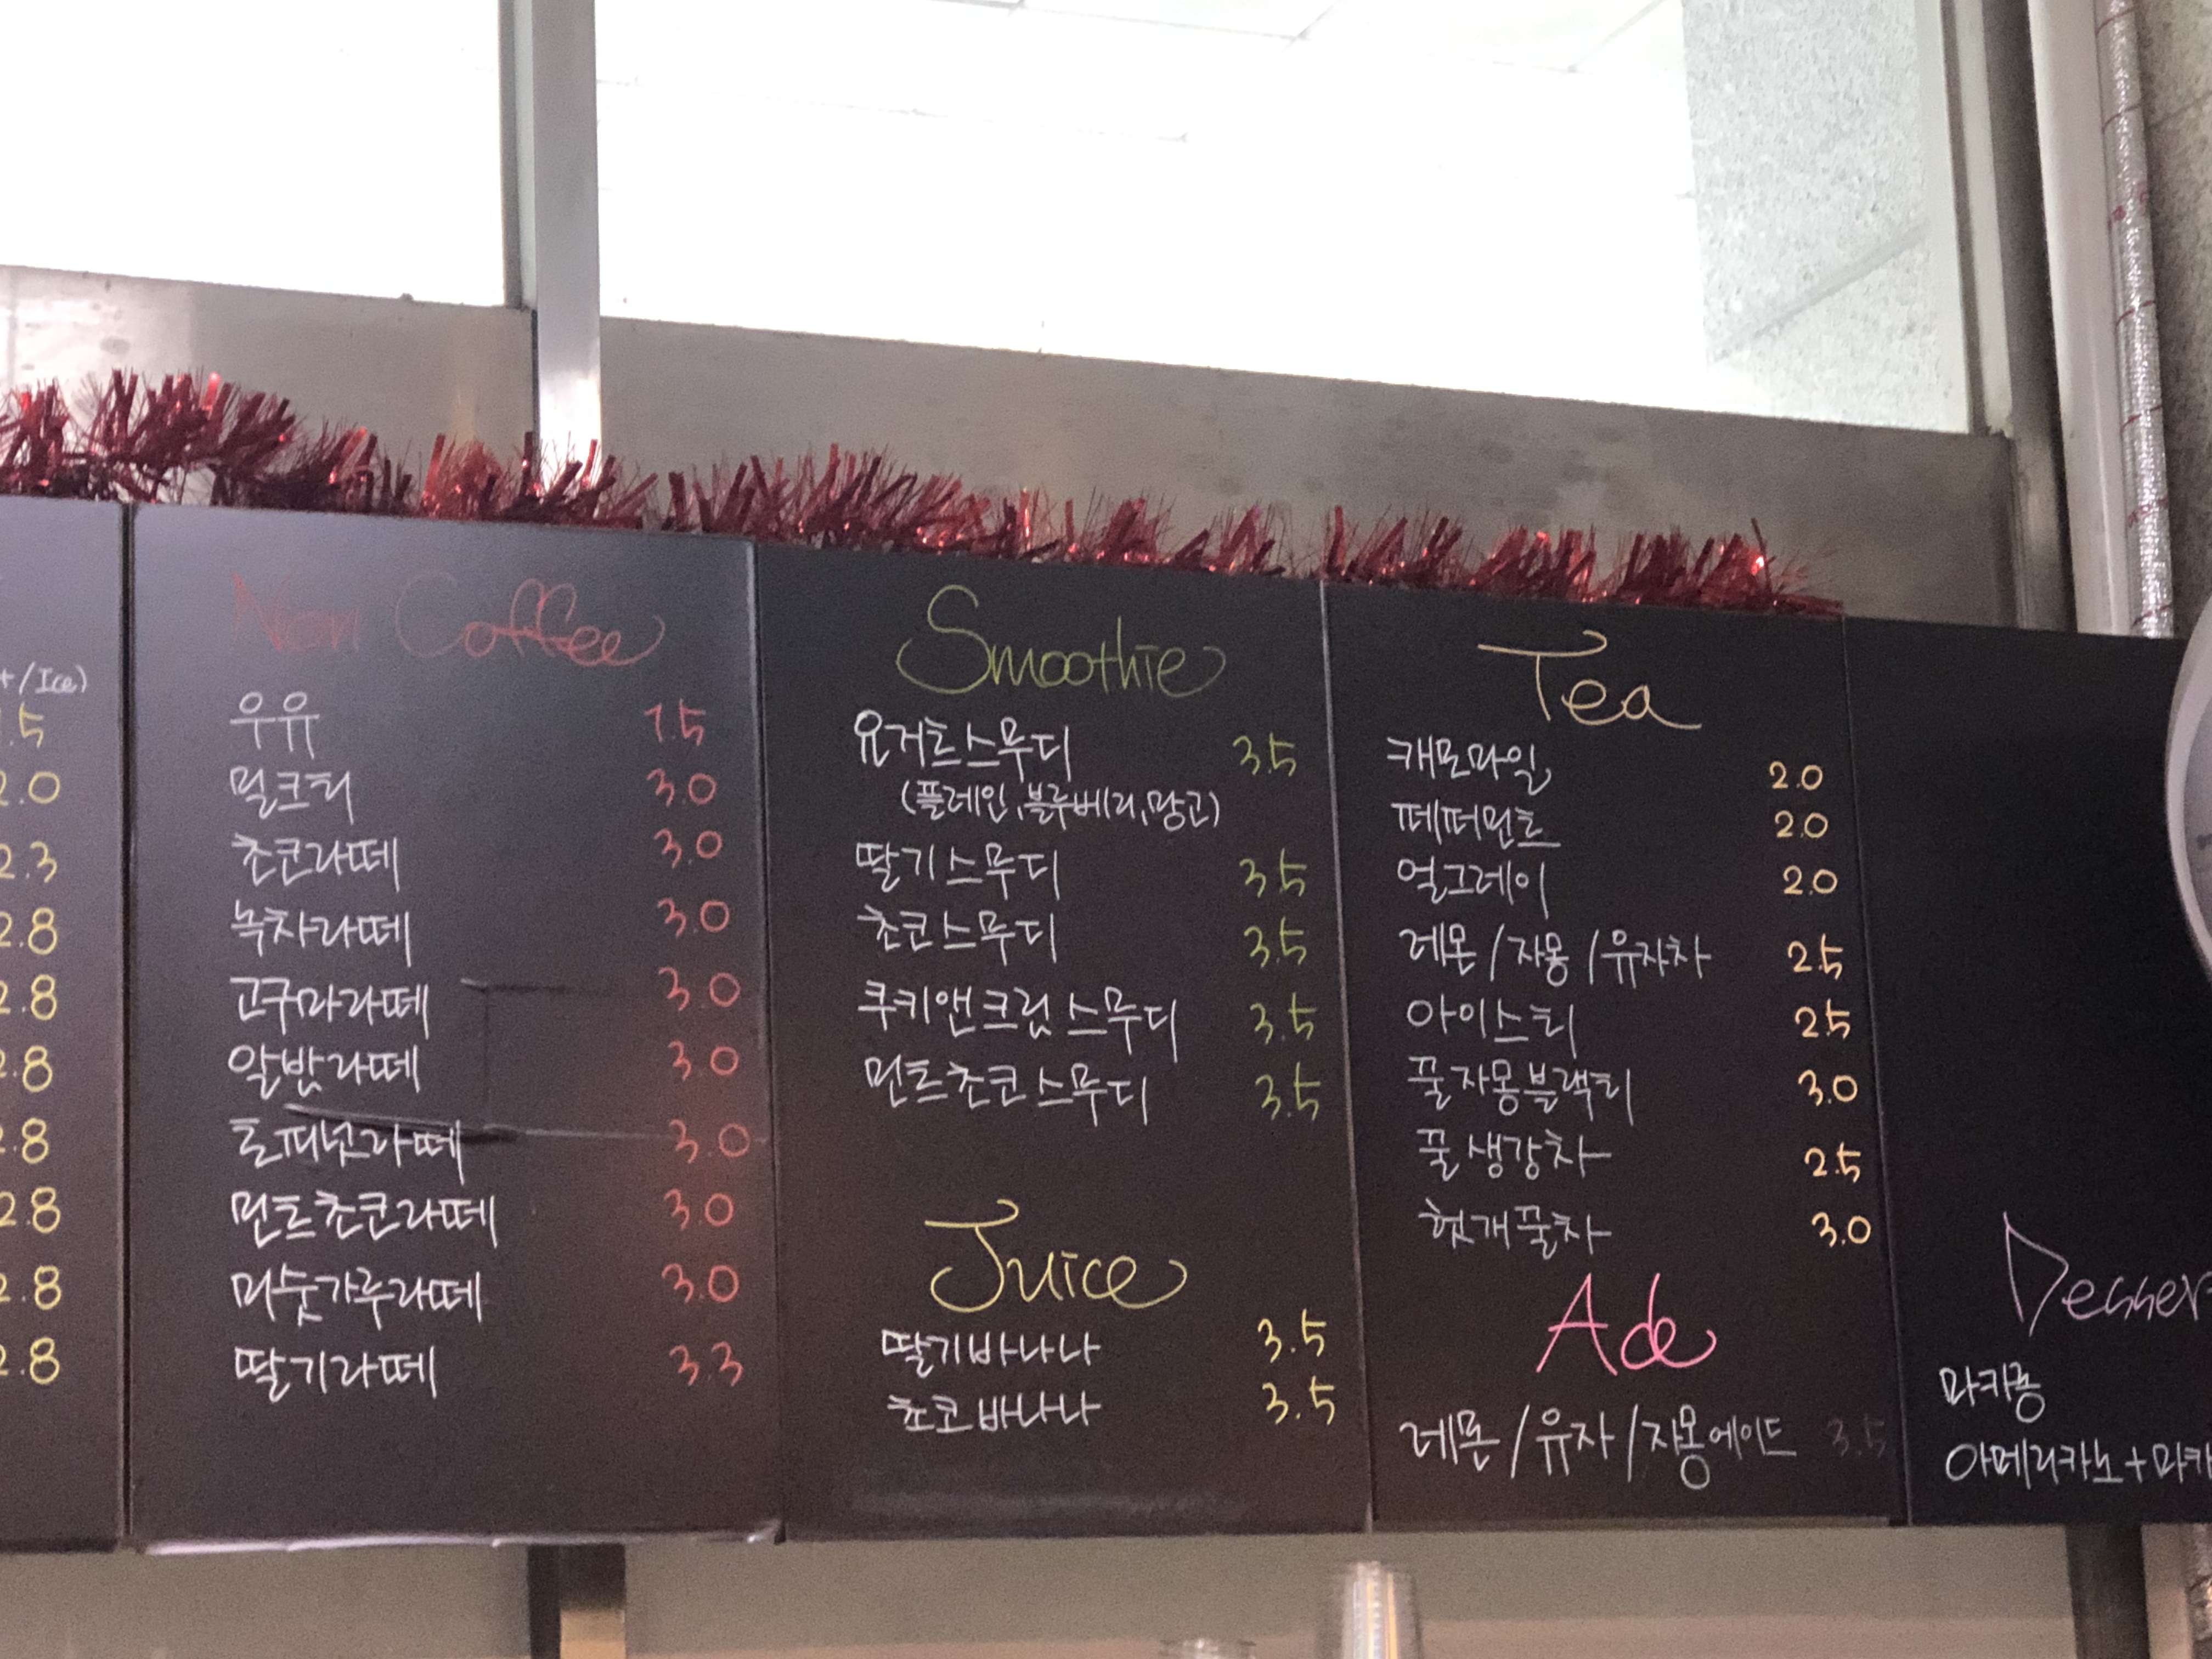 t/Ice)
.5
2.0
2.3
2.8
2.8
2.8
2.8
2.8
2.8
2.8
Non Coffee
우유 1.5
밀크티 3.0
초코라떼 3.0
녹차라떼 3.0
고구마라떼 3.0
알밤라떼 3.0
토피넛라떼 3.0
민트초코라떼 3.0
미숫가루라떼 3.0
딸기라떼 3.3
Smoothie
요거트스무디 3.5
(플레인,블루베리,망고)
딸기스무디 3.5
초코스무디 3.5
쿠키앤크림 스무디 3.5
민트초코스무디 3.5
Juice
딸기바나나 3.5
초코바나나 3.5
Tea
캐모마일 2.0
페퍼민트 2.0
얼그레이 2.0
레몬/자몽/유자차 2.5
아이스티 2.5
꿀자몽블랙티 3.0
꿀생강차 2.5
헛개꿀차 3.0
Ade
레몬/유자/자몽에이드 3.5
Desser
마카롱
아메리카노+마카